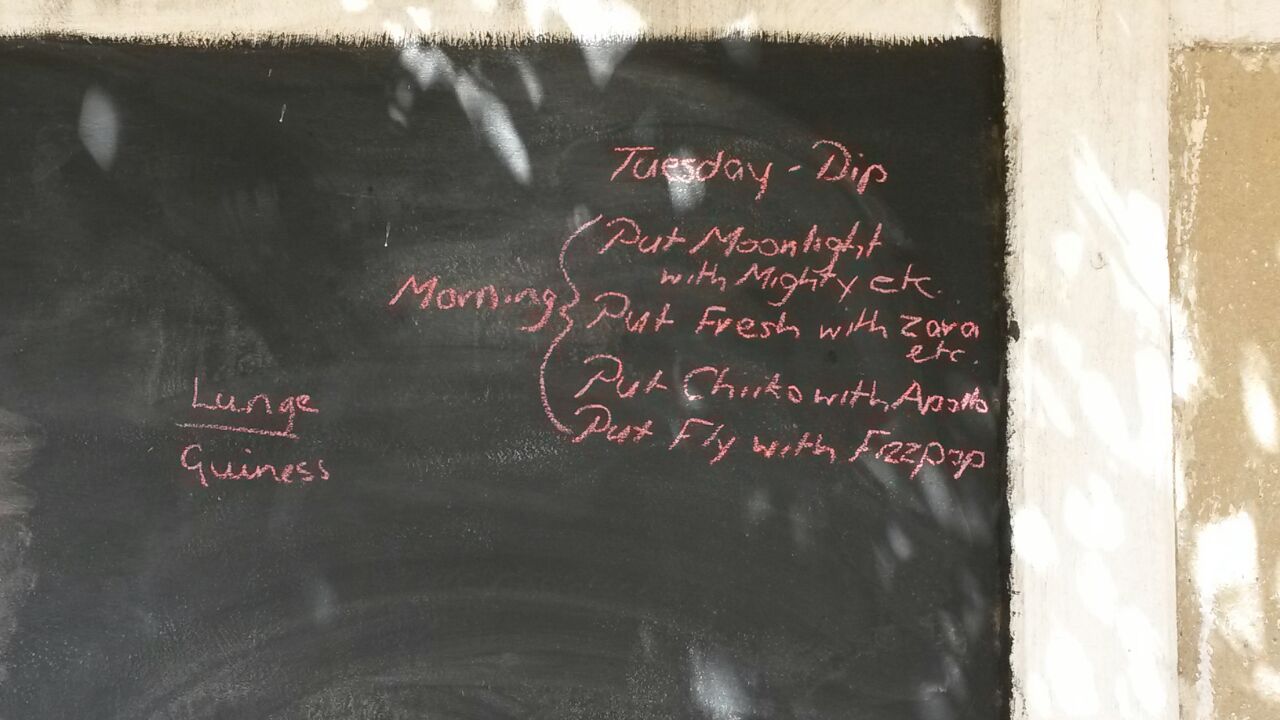 Tuesday - Dip
Put Moonlight
with Mighty etc.
Morning
Put Fresh with Zara
etc.
Put Chiiko with Apollo
Put Fly with Fizzpop
Lunge
Guiness